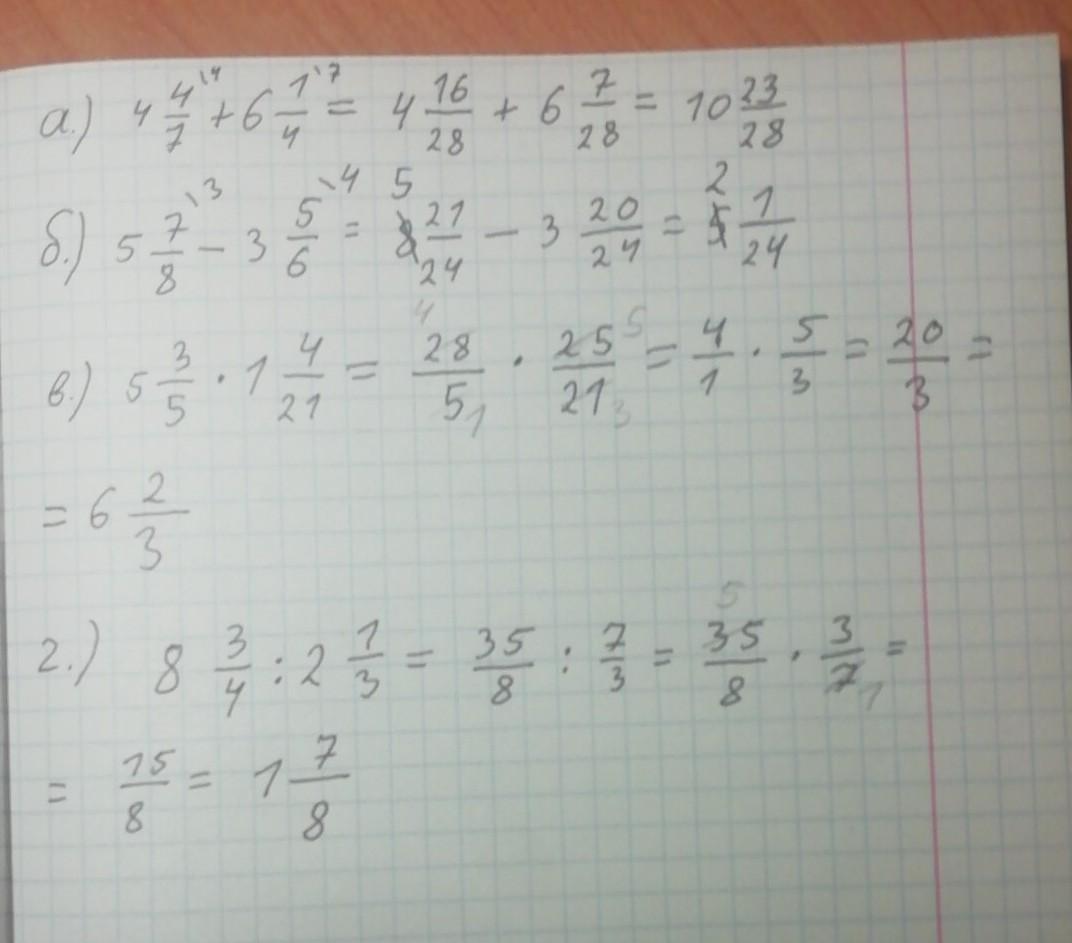 а.) 4 4/7 \4 + 6 1/4 \7 = 4 16/28 + 6 7/28 = 10 23/28
б.) 5 7/8 \3 − 3 5/6 \4 = 5 21/24 − 3 20/24 = 2 1/24
в.) 5 3/5 · 1 4/21 = 28/5 · 25/21 = 4/1 · 5/3 = 20/3 =
= 6 2/3
г.) 8 3/4 : 2 1/3 = 35/8 : 7/3 = 35/8 · 3/7 =
= 15/8 = 1 7/8